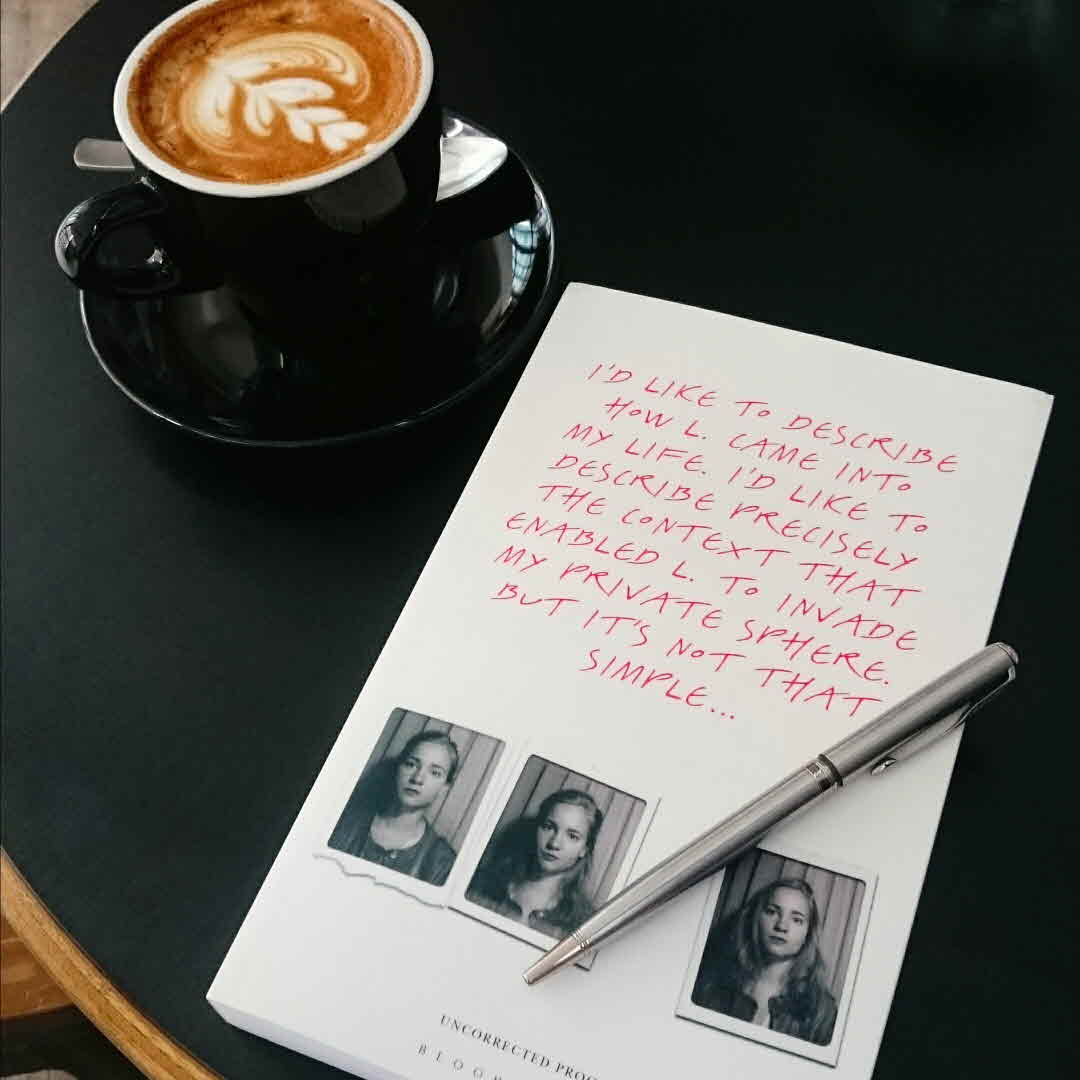 I'D LIKE TO DESCRIBE
HOW L. CAME INTO
MY LIFE. I'D LIKE TO
DESCRIBE PRECISELY
THE CONTEXT THAT
ENABLED L. TO INVADE
MY PRIVATE SPHERE.
BUT IT'S NOT THAT
SIMPLE...
UNCORRECTED PROO
BLOO